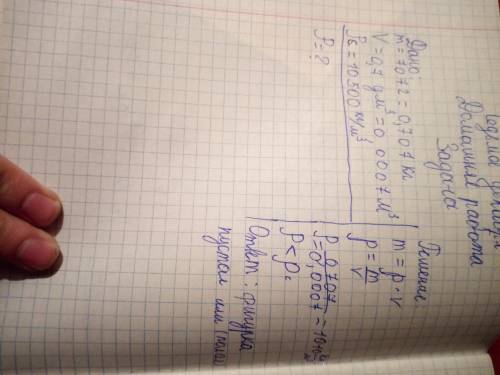 Домашняя работа
Задача
Дано:
m = 707 г = 0,707 кг
V = 0,7 дм³ = 0,0007 м³
ρс = 10500 кг/м³
ρ = ?
Решение
m = ρ · V
ρ = m/V
ρ = 0,707/0,0007 = 1010
ρ < ρс
Ответ: фигурка
пустая или (полая